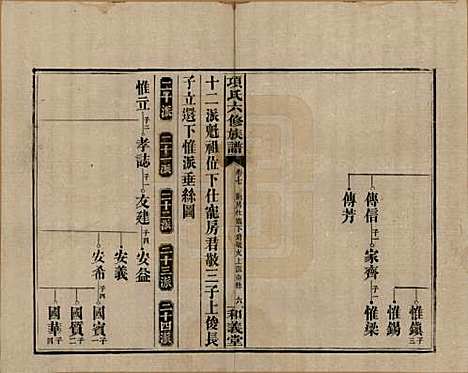 惟鎮 子三
惟錫
傳信 子一 家齊 子一 惟梁
傳芳
項氏六修族譜
卷七
六
和義堂
十二派魁祖位下仕寵房君敬三子上俊長
子立還下惟派垂絲圖
二十派 二十一派 二十二派 二十三派 二十四派
惟立 子二 孝誌 子一 友建 子四 安益
安義
安希 子四 國賓 子一
國質 子二
國華 子四